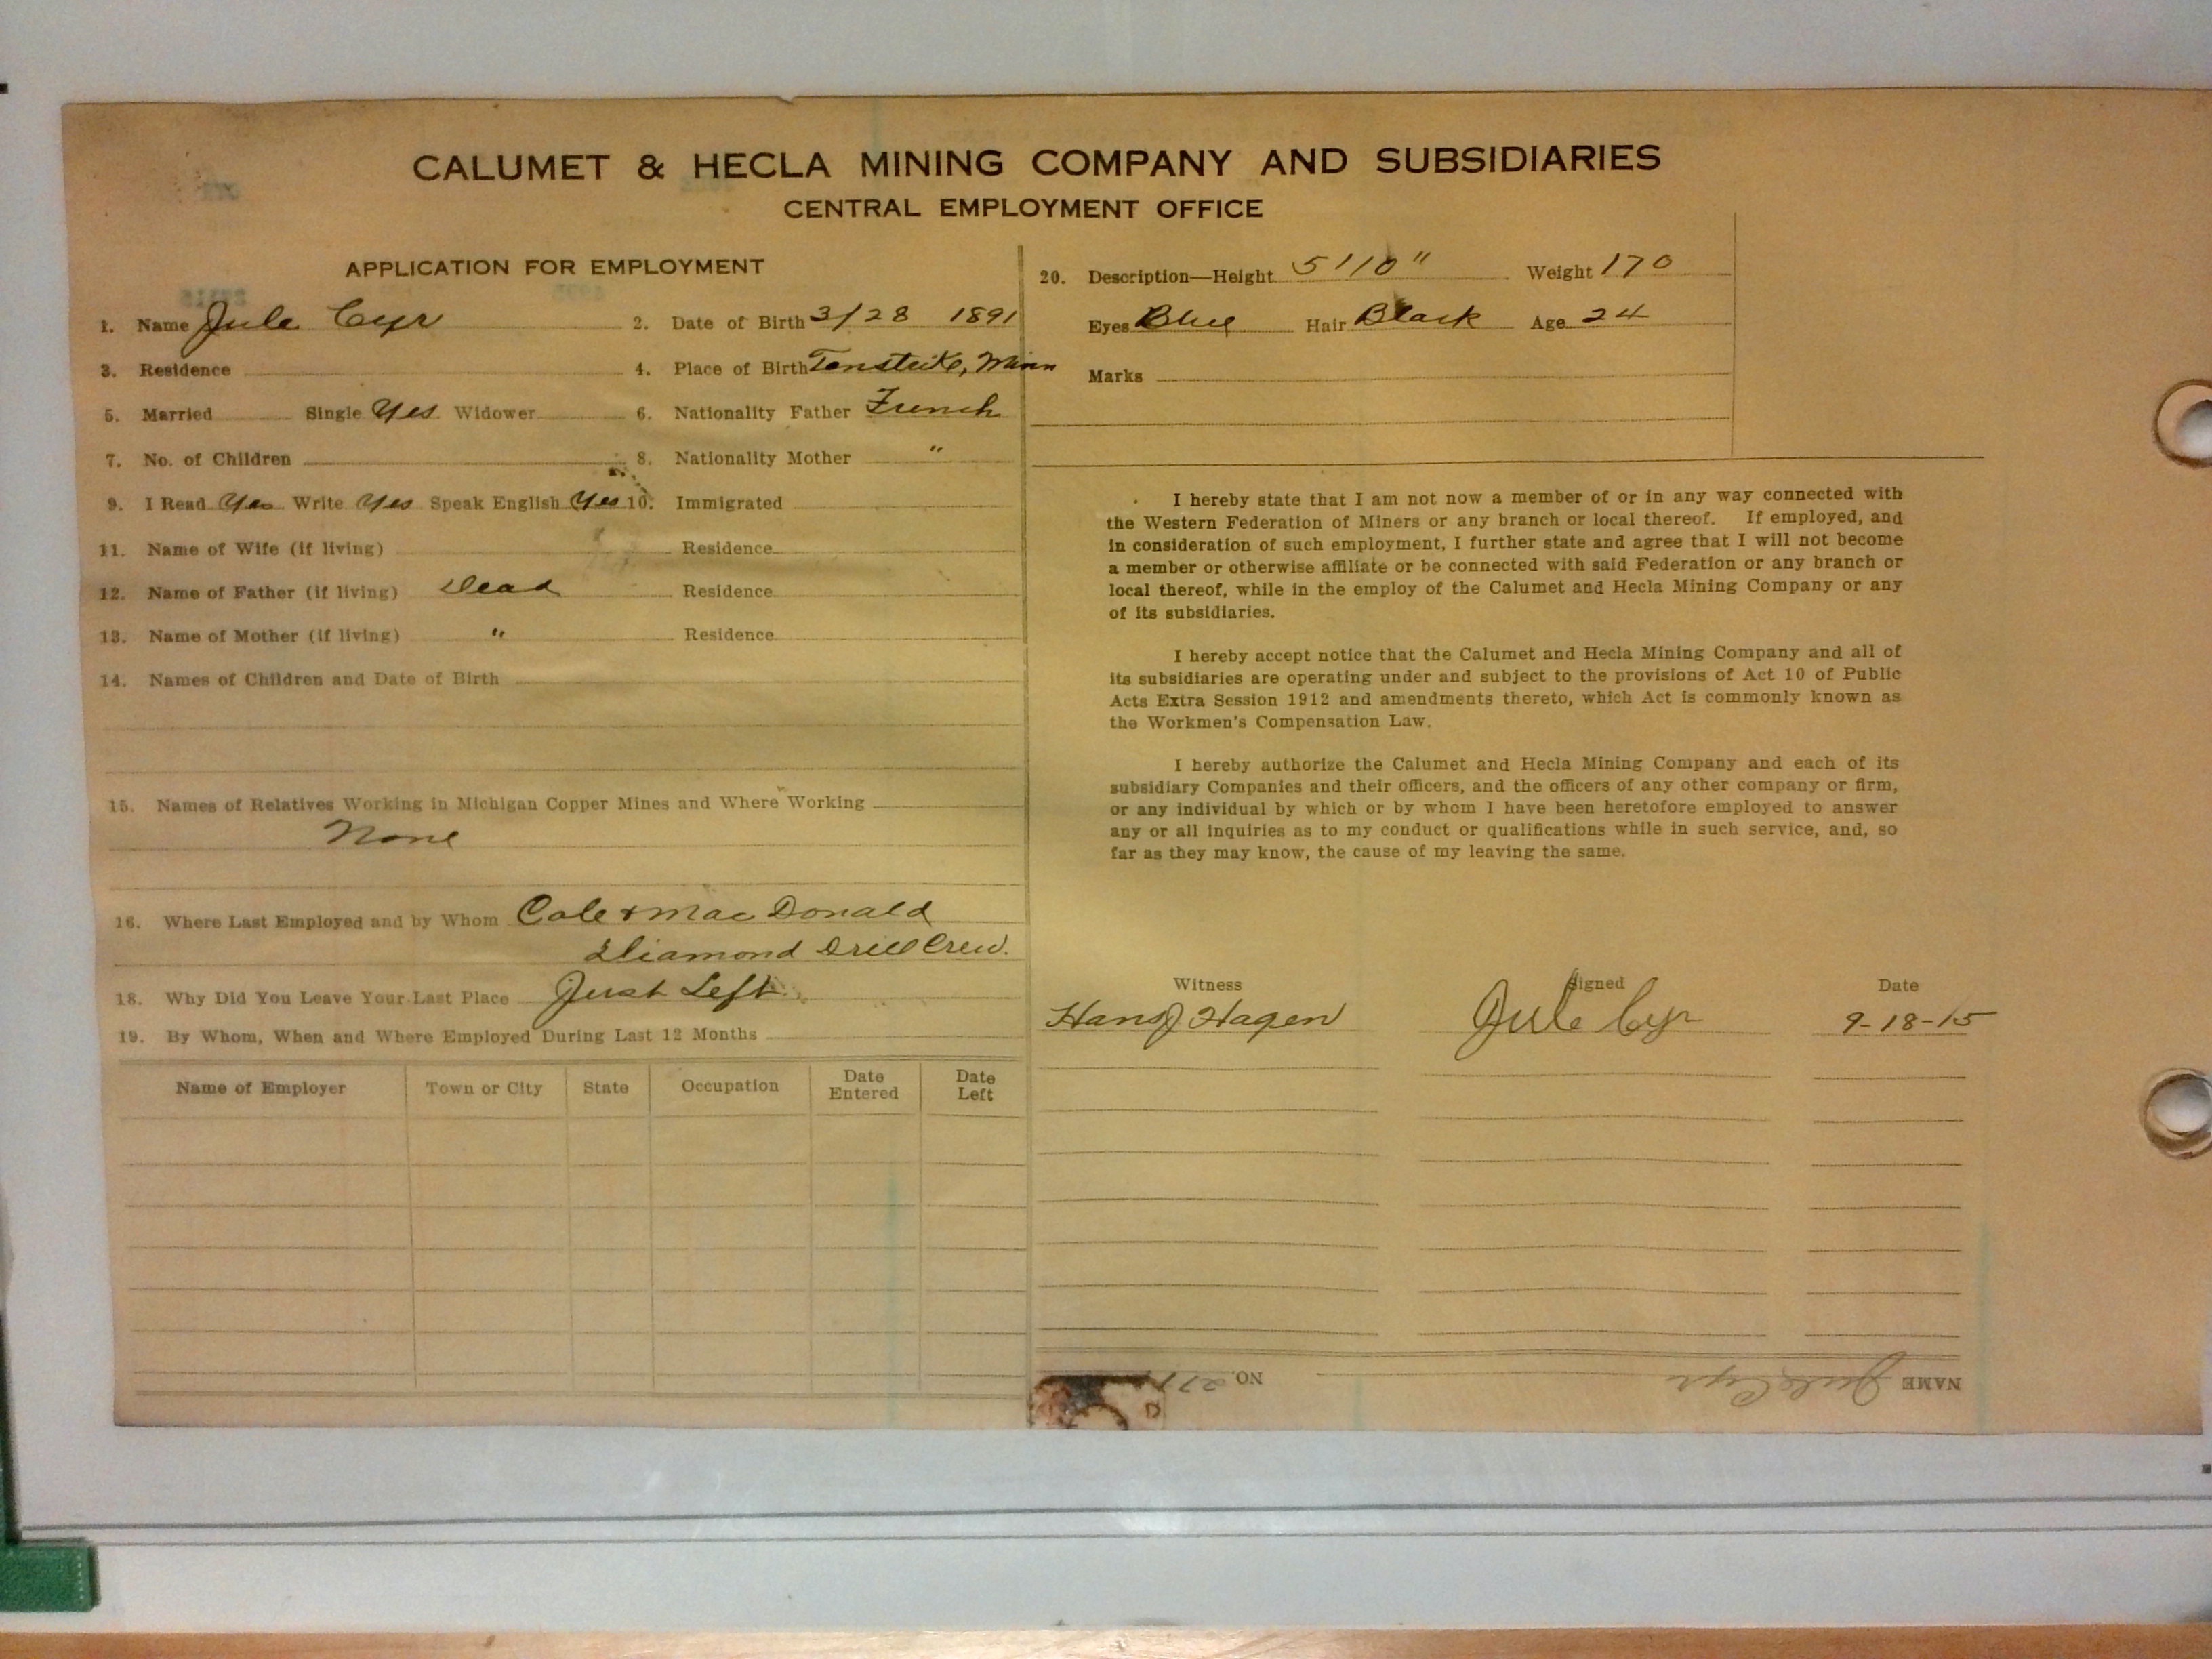 CALUMET & HECLA MINING COMPANY AND SUBSIDIARIES
CENTRAL EMPLOYMENT OFFICE
APPLICATION FOR EMPLOYMENT
1. Name Jule Cyr 2. Date of Birth 3/28 1891
3. Residence 4. Place of Birth Tenstrike, Minn
5. Married Single Yes Widower 6. Nationality Father French
7. No. of Children 8. Nationality Mother "
9. I Read Yes Write Yes Speak English Yes 10. Immigrated
11. Name of Wife (if living) Residence
12. Name of Father (if living) Dead Residence
13. Name of Mother (if living) " Residence
14. Names of Children and Date of Birth
15. Names of Relatives Working in Michigan Copper Mines and Where Working
None
16. Where Last Employed and by Whom Cole & MacDonald
Diamond Drill Crew.
18. Why Did You Leave Your Last Place Just Left
19. By Whom, When and Where Employed During Last 12 Months
Name of Employer Town or City State Occupation Date Entered Date Left
20. Description—Height 5'10" Weight 170
Eyes Blue Hair Black Age 24
Marks
I hereby state that I am not now a member of or in any way connected with
the Western Federation of Miners or any branch or local thereof. If employed, and
in consideration of such employment, I further state and agree that I will not become
a member or otherwise affiliate or be connected with said Federation or any branch or
local thereof, while in the employ of the Calumet and Hecla Mining Company or any
of its subsidiaries.
I hereby accept notice that the Calumet and Hecla Mining Company and all of
its subsidiaries are operating under and subject to the provisions of Act 10 of Public
Acts Extra Session 1912 and amendments thereto, which Act is commonly known as
the Workmen's Compensation Law.
I hereby authorize the Calumet and Hecla Mining Company and each of its
subsidiary Companies and their officers, and the officers of any other company or firm,
or any individual by which or by whom I have been heretofore employed to answer
any or all inquiries as to my conduct or qualifications while in such service, and, so
far as they may know, the cause of my leaving the same.
Witness Signed Date
Hans J Hagen Jule Cyr 9-18-15
NAME Jule Cyr NO.